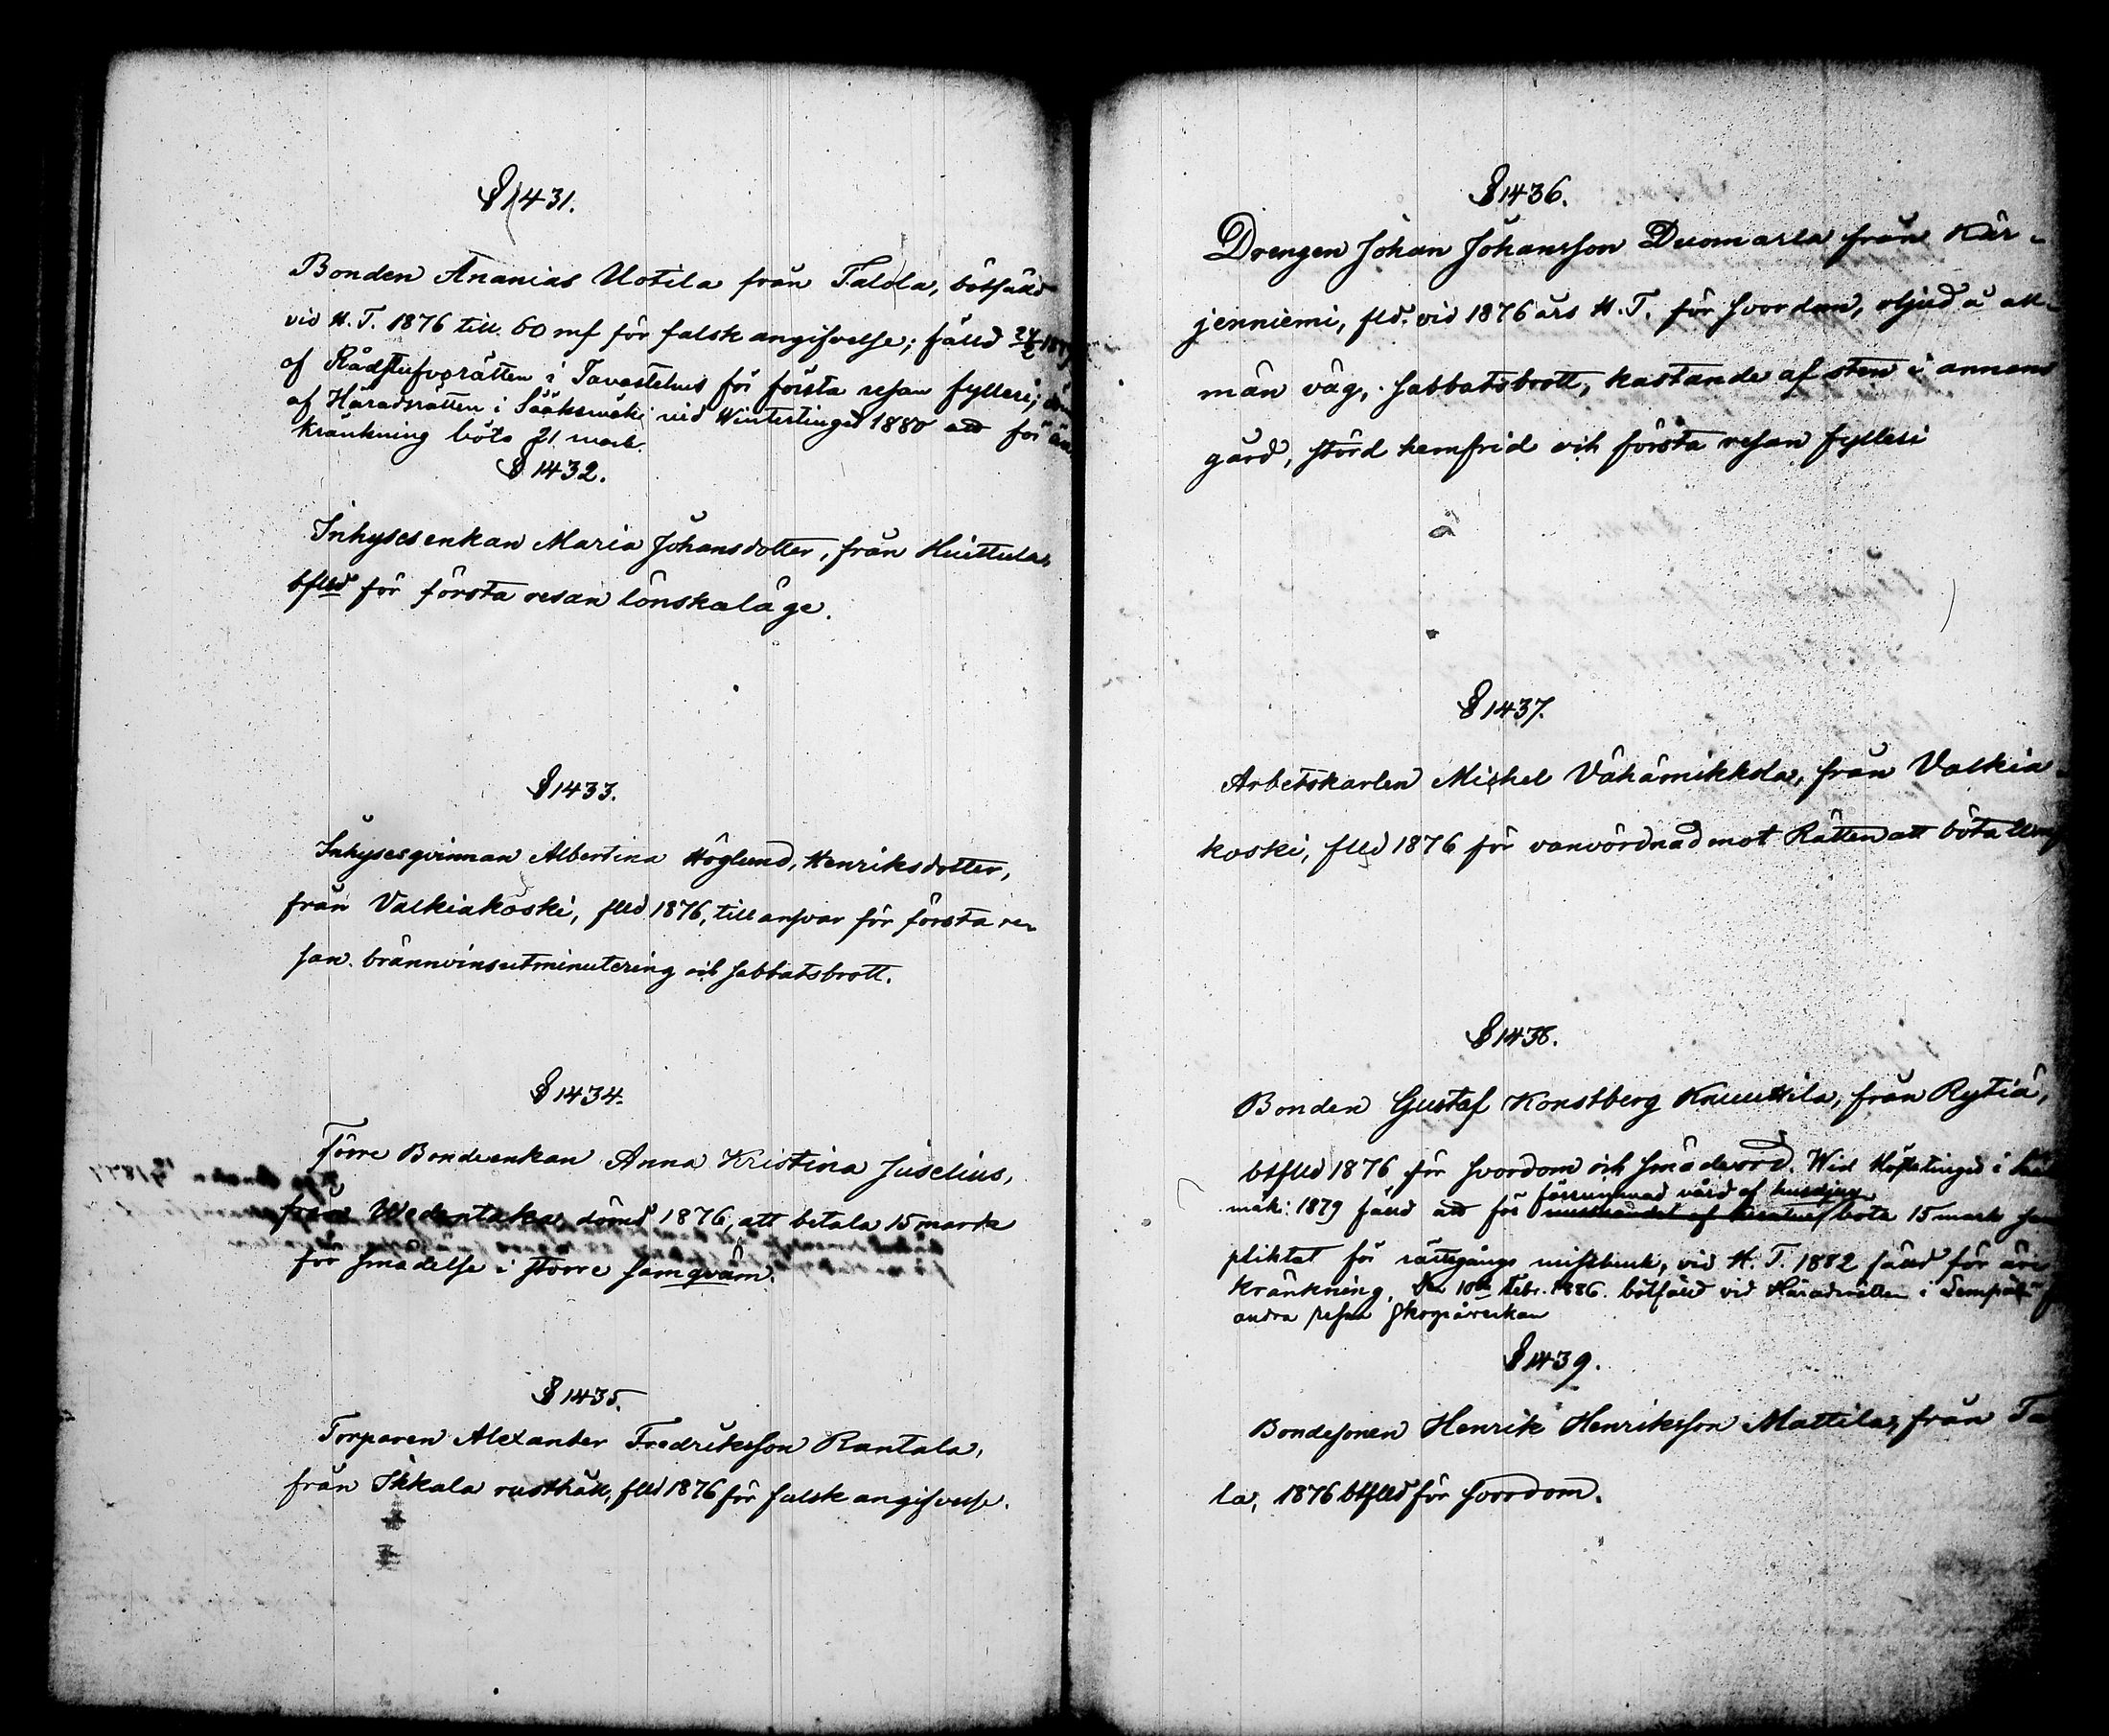 § 1431.
Bonden Ananias Uotila från Talola, bötfälld
vid H. T. 1876 till 60 mf för falsk angifvelse; fälld
af Rådstufvorätten i Tavastehus för första resan fylleri;
af Häradsrätten i Sääksmäki vid Wintertinget 1880 att för
kränkning böta 21 mark.
§ 1432.
Inhysesenkan Maria Johansdotter, från Huittula,
bflld för första resan lönskaläge.
§ 1433.
Inhysesqvinnan Albertina Höglund, Henriksdotter,
från Valkiakoski, flld 1876, till ansvar för första re-
san brännvinsutminutering och sabbatsbrott.
§ 1434.
Förre Bondeenkan Anna Kristina Juselius,
från Wedentaka dömd 1876, att betala 15 mark
för smädelse i större samqväm.
§ 1435.
Torparen Alexander Fredriksson Rantala,
från Ikkala rusthåll, flld 1876 för falsk angifvelse.
§ 1436.
Drengen Johan Johansson Duomarla från Kär-
jenniemi, fld. vid 1876 års H. T. för svordom, oljud å all-
män väg, sabbatsbrott, kastande af sten i annans
gård, störd hemfrid och första resan fylleri
§ 1437.
Arbetskarlen Michel Vähämikkola, från Valkia-
koski, flld 1876 för vanvördnad mot Rätten att böta
§ 1438.
Bonden Gustaf Konstberg Knuuttila, från Rytiä,
btflld 1876 för svordom och smädeord. Wid Höstetinget i
mäki 1879 fälld att för förrummad vård af husdjur böta 15 mark
pliktat för rättegångs missbruk, vid H. T. 1882 fälld för äre
kränkning. Den 10de Febr. 1886. bötfälld vid Häradsrätten i Lempäälä
andra resan skogsåverkan
§ 1439.
Bondesonen Henrik Henriksson Mattila, från Ta
la, 1876 btflld för svordom.